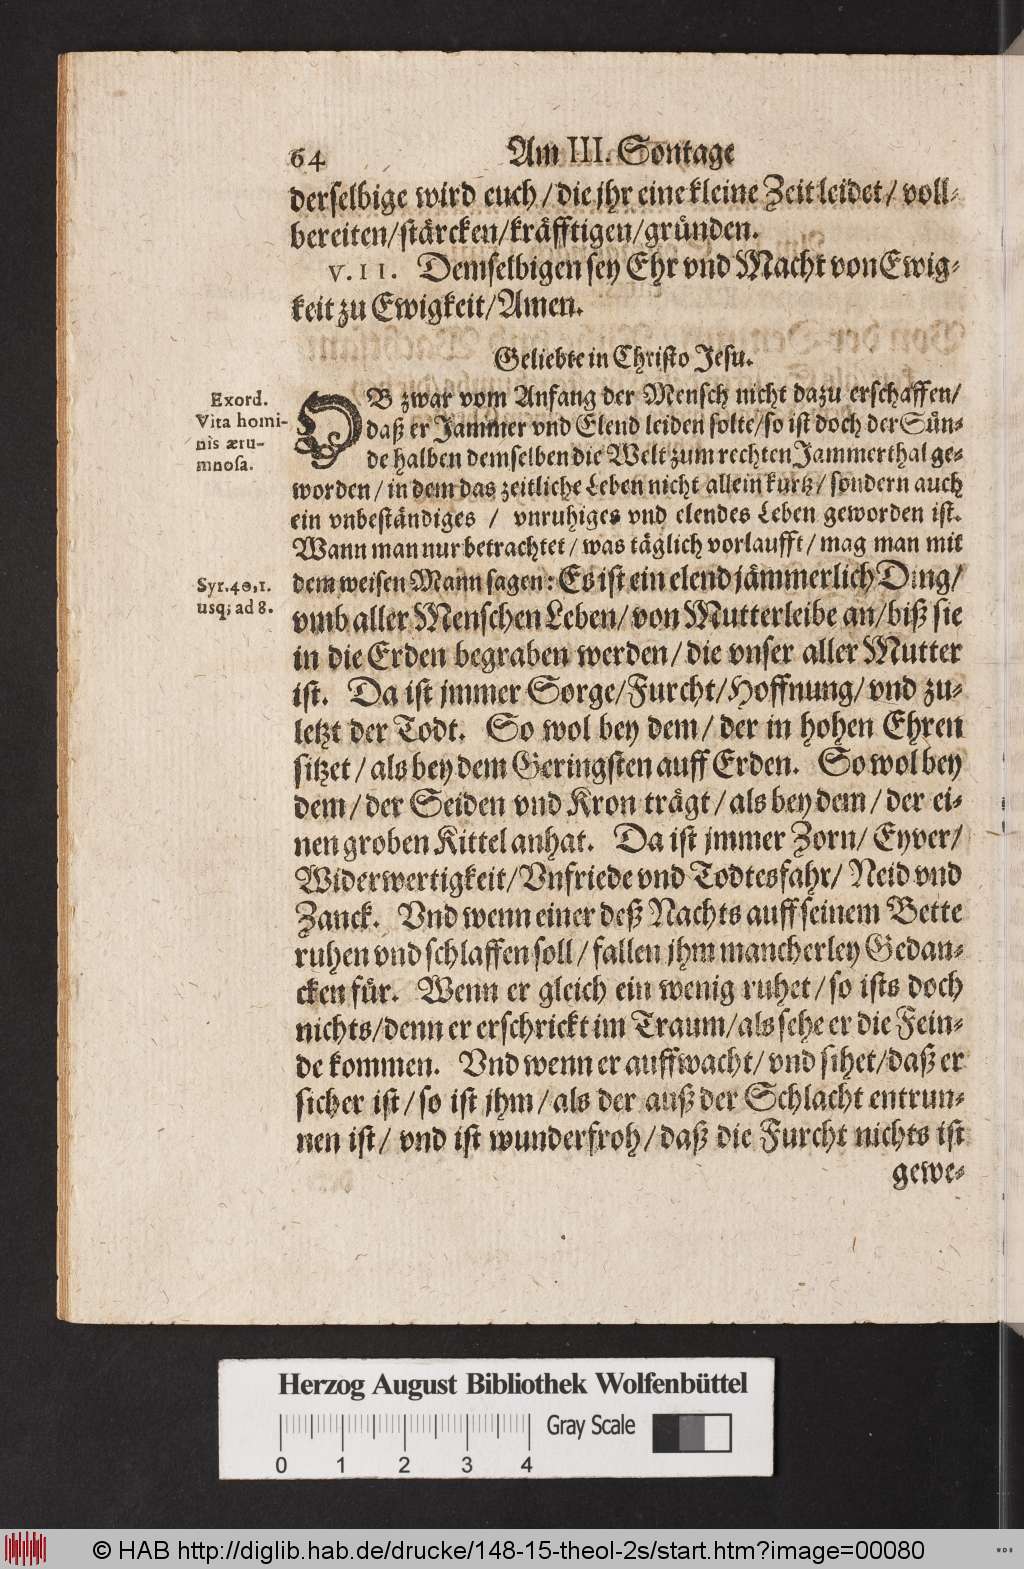 64 Am III. Sontage
derselbige wird euch / die jhr eine kleine Zeit leidet / voll-
bereiten / stärcken / kräfftigen / gründen.
V. 11. Demselbigen sey Ehr vnd Macht von Ewig-
keit zu Ewigkeit / Amen.
Geliebte in Christo Jesu.
Exord.
Vita homi-
nis æru-
mnosa.
OB zwar vom Anfang der Mensch nicht dazu erschaffen /
daß er Jammer vnd Elend leiden solte / so ist doch der Sün-
de halben demselben die Welt zum rechten Jammerthal ge-
worden / in dem das zeitliche Leben nicht allein kurtz / sondern auch
ein vnbeständiges / vnruhiges vnd elendes Leben geworden ist.
Wann man nur betrachtet / was täglich vorlaufft / mag man mit
Syr. 40, 1.
usq; ad 8.
dem weisen Mann sagen: Es ist ein elend jämmerlich Ding /
vmb aller Menschen Leben / von Mutterleibe an / biß sie
in die Erden begraben werden / die vnser aller Mutter
ist. Da ist jmmer Sorge / Furcht / Hoffnung / vnd zu-
letzt der Todt. So wol bey dem / der in hohen Ehren
sitzet / als bey dem Geringsten auff Erden. So wol bey
dem / der Seiden vnd Kron trägt / als bey dem / der ei-
nen groben Kittel anhat. Da ist jmmer Zorn / Eyver /
Widerwertigkeit / Vnfriede vnd Todtesfahr / Neid vnd
Zanck. Vnd wenn einer deß Nachts auff seinem Bette
ruhen vnd schlaffen soll / fallen jhm mancherley Gedan-
cken für. Wenn er gleich ein wenig ruhet / so ists doch
nichts / denn er erschrickt im Traum / als sehe er die Fein-
de kommen. Vnd wenn er auffwacht / vnd sihet / daß er
sicher ist / so ist jhm / als der auß der Schlacht entrun-
nen ist / vnd ist wunderfroh / daß die Furcht nichts ist
gewe-
Herzog August Bibliothek Wolfenbüttel
Gray Scale
0 1 2 3 4
© HAB http://diglib.hab.de/drucke/148-15-theol-2s/start.htm?image=00080